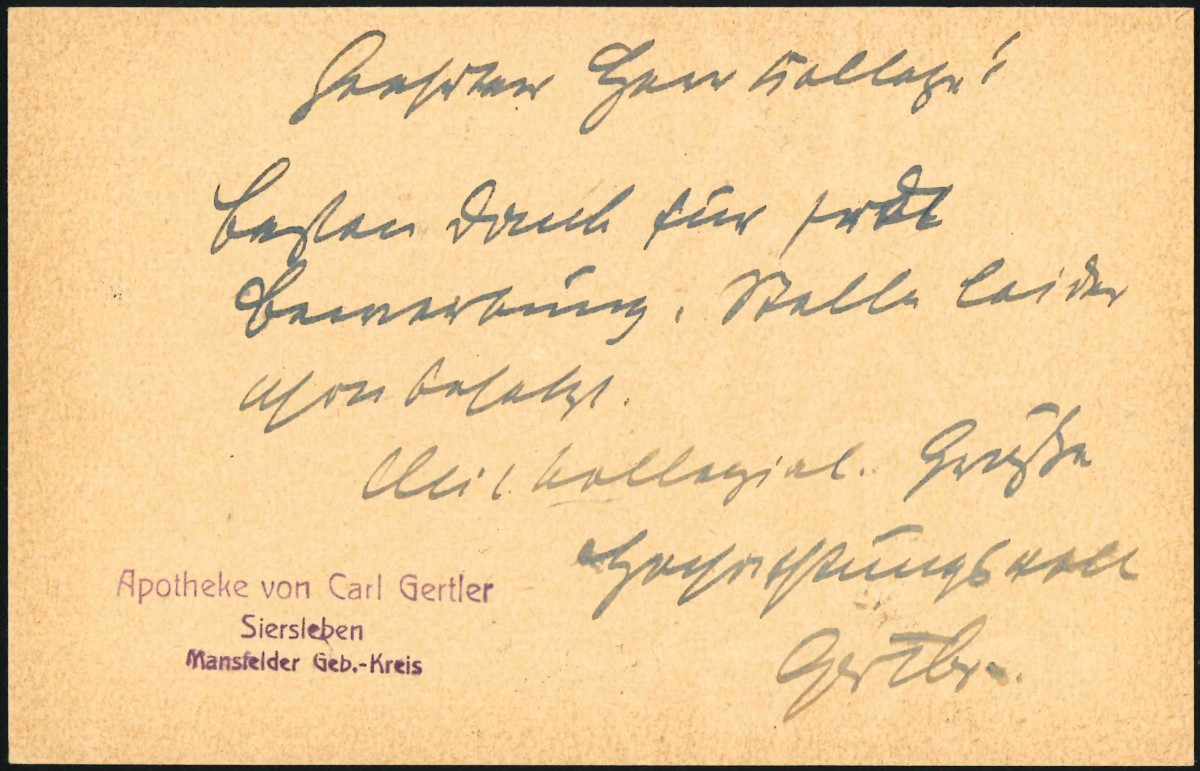 Geehrter Herr Kollege!
Besten Dank für frdl
Bewerbung. Stelle leider
schon besetzt.
Mit kollegial. Grüße
Hochachtungsvoll
Gertler.
Apotheke von Carl Gertler
Siersleben
Mansfelder Geb.-Kreis